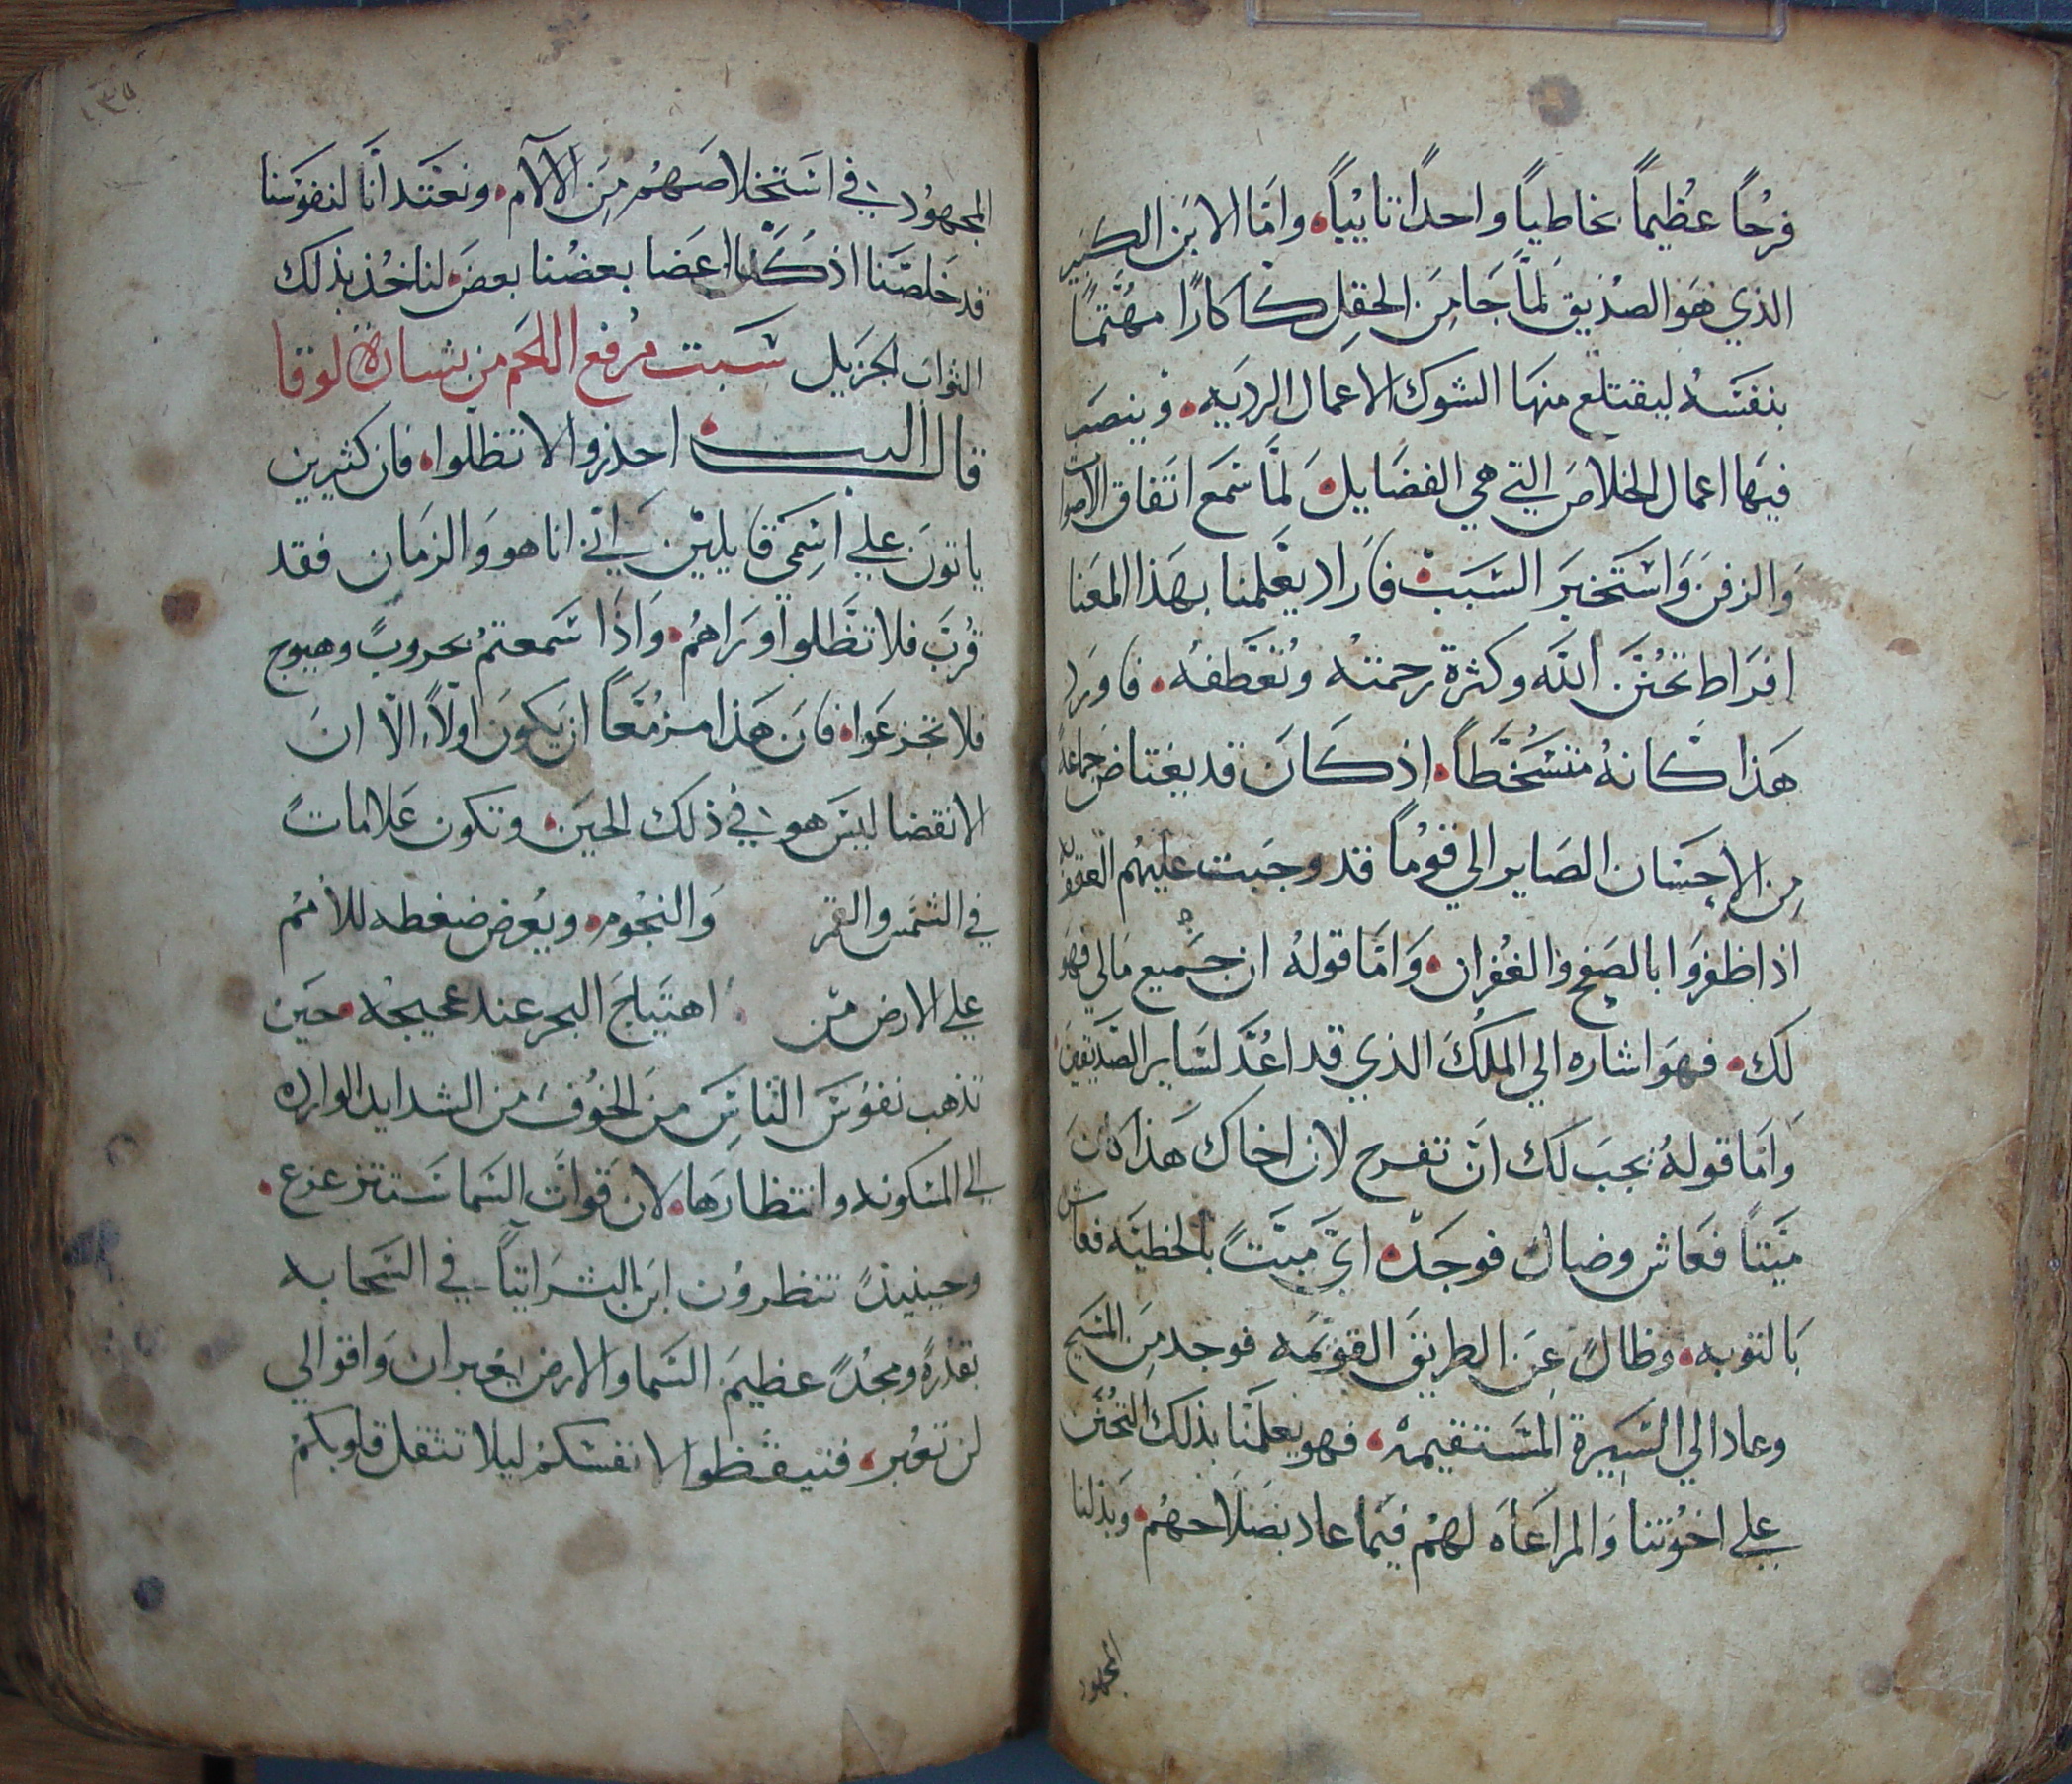 فرحًا عظيمًا بخاطيًا واحدًا تايبًا، واما الابن الكبير
الذي هو الصديق لما جا من الحقل كاكارًا مهتمًا
بنفسه ليقتلع منها الشوك الاعمال الرديه، وينصب
فيها اعمال الخلاص التي هي الفضايل، لما سمع اتفاق الاصوات
والزفن واستخبر السبب، فاراد يعلمنا بهذا المعنا
افراط تحنن الله وكثرة رحمته وتعطفه، فاورد
هذا كانه متسخطًا، اذ كان قد يغتاض جماعة
من الاحسان الصاير الي قومًا قد وجبت عليهم العقوبه
اذا ظفروا بالصفح والغفران، واما قوله ان جميع مالي فهو
لك، فهو اشاره الي الملك الذي قد اعد لساير الصديقين
واما قوله يجب لك ان تفرح لان اخاك هذا كان
ميتًا فعاش وضال فوجد، اي ميت بالخطيه فعاش
بالتوبه، وظال عن الطريق القويمه فوجد من المسيح
وعاد الي السيرة المستقيمه، فهو يعلمنا بذلك التحنن
علي اخوتنا والمراعاه لهم فيما عاد بصلاحهم، وبذلنا
المجهود
١٣٥
المجهود في استخلاصهم من الالام، ونعتد انا لنفوسنا
قد خلصنا اذ كلنا اعضا بعضنا بعض، لناخذ بذلك
الثواب الجزيل سبت مرفع اللحم من بشارة لوقا
قال الرب، احذروا الا تظلوا، فان كثيرين
ياتون علي اسمي قايلين اني انا هو والزمان فقد
قرب فلا تظلوا وراهم، واذا سمعتم بحروب وهيوج
فلا تجزعوا، فان هذا مزمعًا ان يكون اولاً، الا ان
الانقضا ليس هو في ذلك الحين، وتكون علامات
في الشمس والقمر والنجوم، ويعرض ضغطه للامم
علي الارض من اهتياج البحر عند عجيجه، حين
تذهب نفوس الناس من الخوف من الشدايد الوارده
الي المسكونه وانتظارها، لان قوات السما ستتزعزع،
وحينيذ تنظرون ابن البشر اتيًا في السحابه
بقدرة ومجد عظيم، السما والارض يعبران واقوالي
لن تعبر، فتيقظوا لانفسكم ليلا تثقل قلوبكم